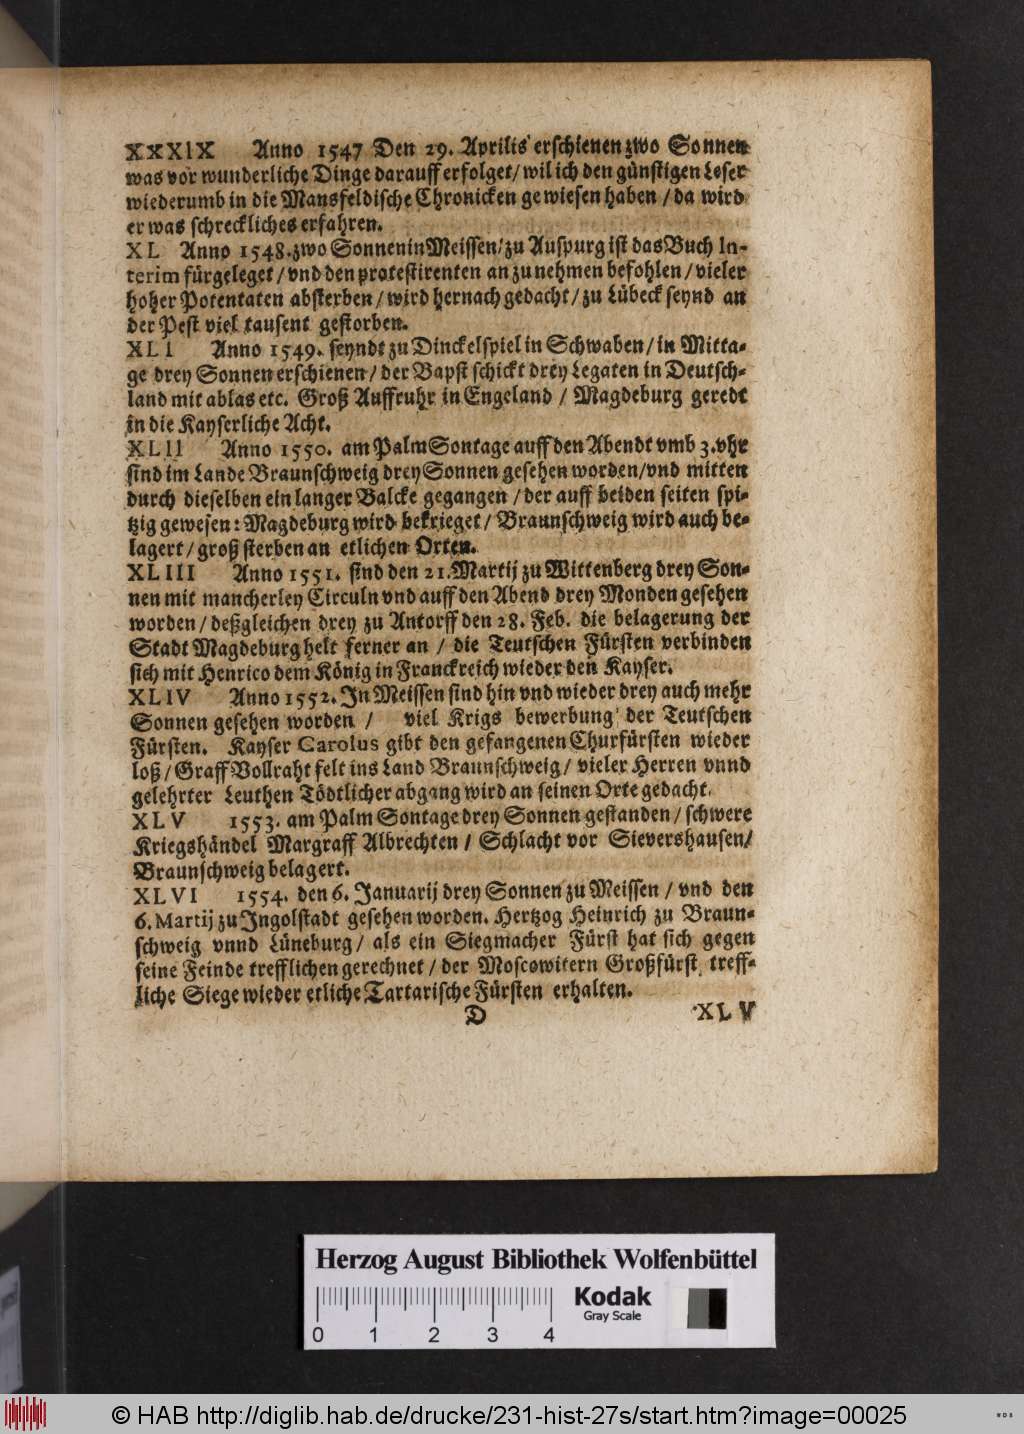 XXXIX Anno 1547 Den 29. Aprilis erschienen zwo Sonnen
was vor wunderliche Dinge darauff erfolget / wil ich den günstigen Leser
wiederumb in die Mansfeldische Chronicken gewiesen haben / da wird
er was schreckliches erfahren.
XL Anno 1548. zwo Sonnen in Meissen / zu Auspurg ist das Buch In-
terim fürgeleget / vnd den protestirenten anzunehmen befohlen / vieler
hoher Potentaten absterben / wird hernach gedacht / zu Lübeck seynd an
der Pest viel tausent gestorben.
XLI Anno 1549. seyndt zu Dinckelspiel in Schwaben / in Mitta-
ge drey Sonnen erschienen / der Bapst schickt drey Legaten in Deutsch-
land mit ablas etc. Groß Auffruhr in Engeland / Magdeburg geredt
in die Kayserliche Acht.
XLII Anno 1550. am Palm Sontage auff den Abendt vmb 3. vhr
sind im Lande Braunschweig drey Sonnen gesehen worden / vnd mitten
durch dieselben ein langer Balcke gegangen / der auff beiden seiten spi-
tzig gewesen: Magdeburg wird bekrieget / Braunschweig wird auch be-
lagert / groß sterben an etlichen Orten.
XLIII Anno 1551. sind den 21. Martij zu Wittenberg drey Son-
nen mit mancherley Circuln vnd auff den Abend drey Monden gesehen
worden / deßgleichen drey zu Antorff den 28. Feb. die belagerung der
Stadt Magdeburg helt ferner an / die Teutschen Fürsten verbinden
sich mit Henrico dem König in Franckreich wieder den Kayser.
XLIV Anno 1552. In Meissen sind hin vnd wieder drey auch mehr
Sonnen gesehen worden / viel Krigs bewerbung der Teutschen
Fürsten. Kayser Carolus gibt den gefangenen Churfürsten wieder
loß / Graff Vollraht felt ins Land Braunschweig / vieler Herren vnnd
gelehrter Leuthen Tödtlicher abgang wird an seinen Orte gedacht.
XLV 1553. am Palm Sontage drey Sonnen gestanden / schwere
Kriegshändel Margraff Albrechten / Schlacht vor Sievershausen /
Braunschweig belagert.
XLVI 1554. den 6. Januarij drey Sonnen zu Meissen / vnd den
6. Martij zu Ingolstadt gesehen worden. Hertzog Heinrich zu Braun-
schweig vnnd Lüneburg / als ein Siegmacher Fürst hat sich gegen
seine Feinde trefflichen gerechnet / der Moscowitern Großfürst treff-
liche Siege wieder etliche Tartarische Fürsten erhalten.
D XLV
Herzog August Bibliothek Wolfenbüttel
0 1 2 3 4
Kodak
Gray Scale
© HAB http://diglib.hab.de/drucke/231-hist-27s/start.htm?image=00025